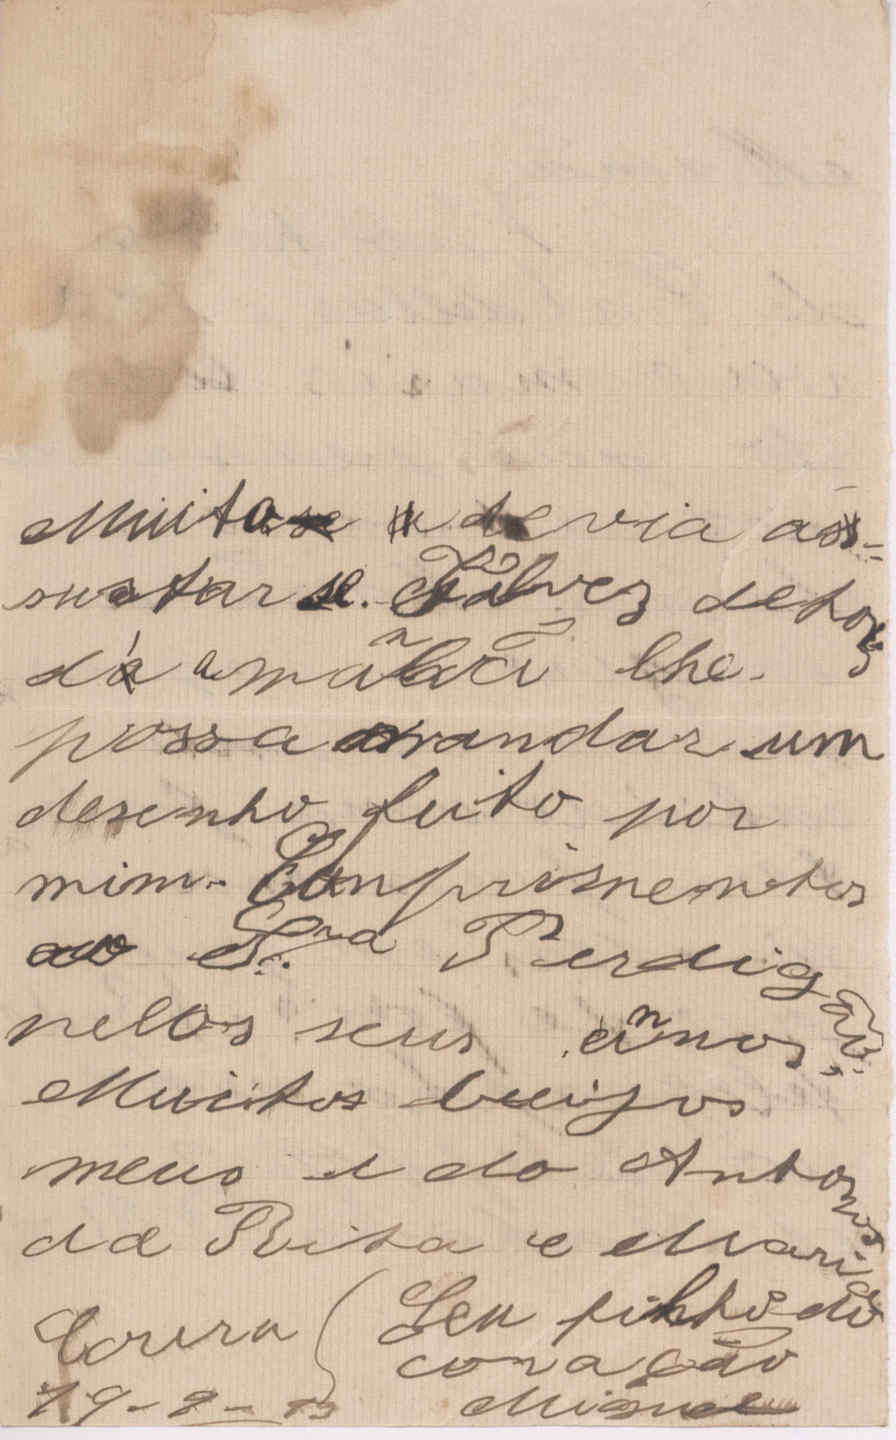 Muito se devia as=
sustar se. Talvez de to
da amanhã lhe
possa mandar um
desenho feito por
mim. Comprimentos
ao Sra Perdigão
pelos seus annos.
Muitos beijos
meus e do Antonio
da Rita e Maria
Coura Seu filho do
coração
19-8- Miguel